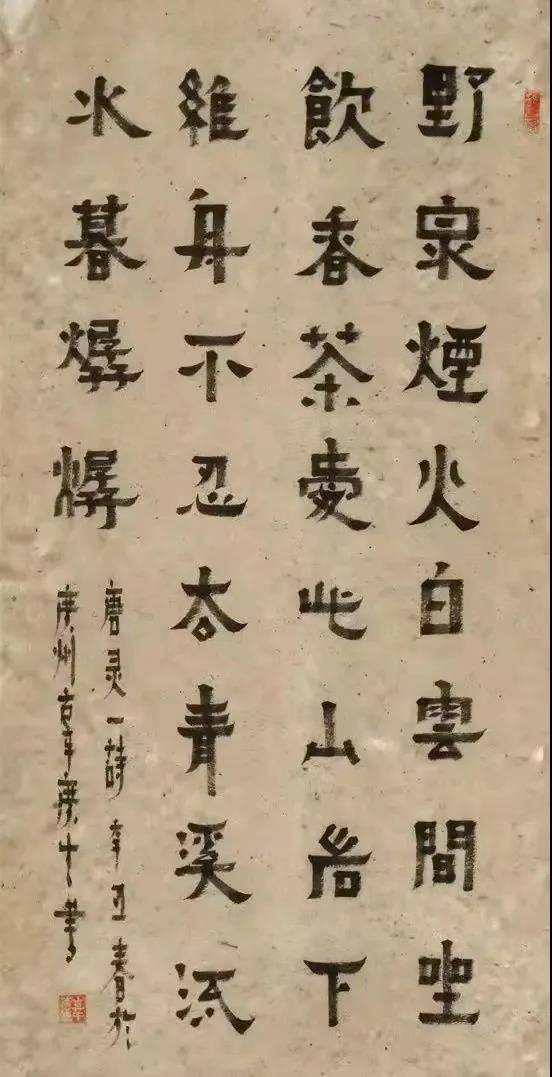 野泉煙火白雲間坐
飲香茶愛此山岩下
維舟不忍去青溪流
水暮潺潺
唐灵一詩辛丑春於
廣州 書